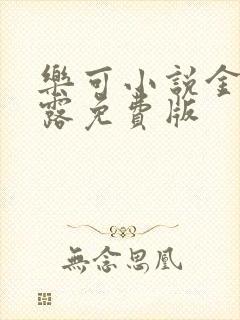 樂可小說金
露免費版
無念思凰